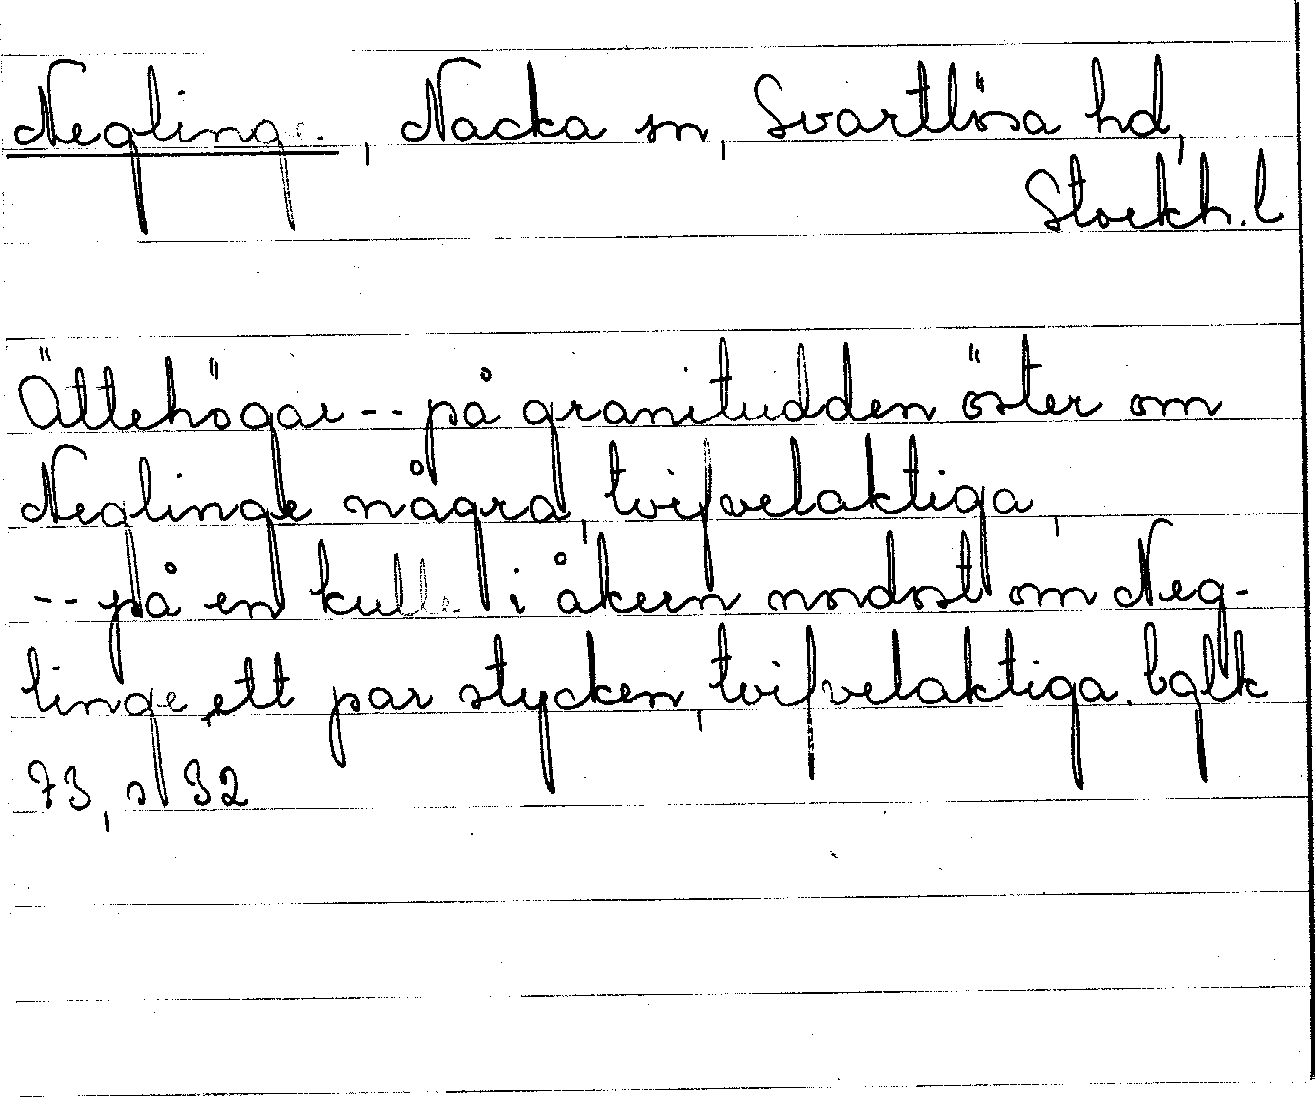 Neglinge, Nacka sn, Svartlösa hd,
Stockh. l
Ättehögar -- på granitudden öster om
Neglinge några, tvifvelaktiga,
-- på en kulle i åkern nordost om Neg-
linge, ett par stycken, tvifvelaktiga. bglk
73, s 32